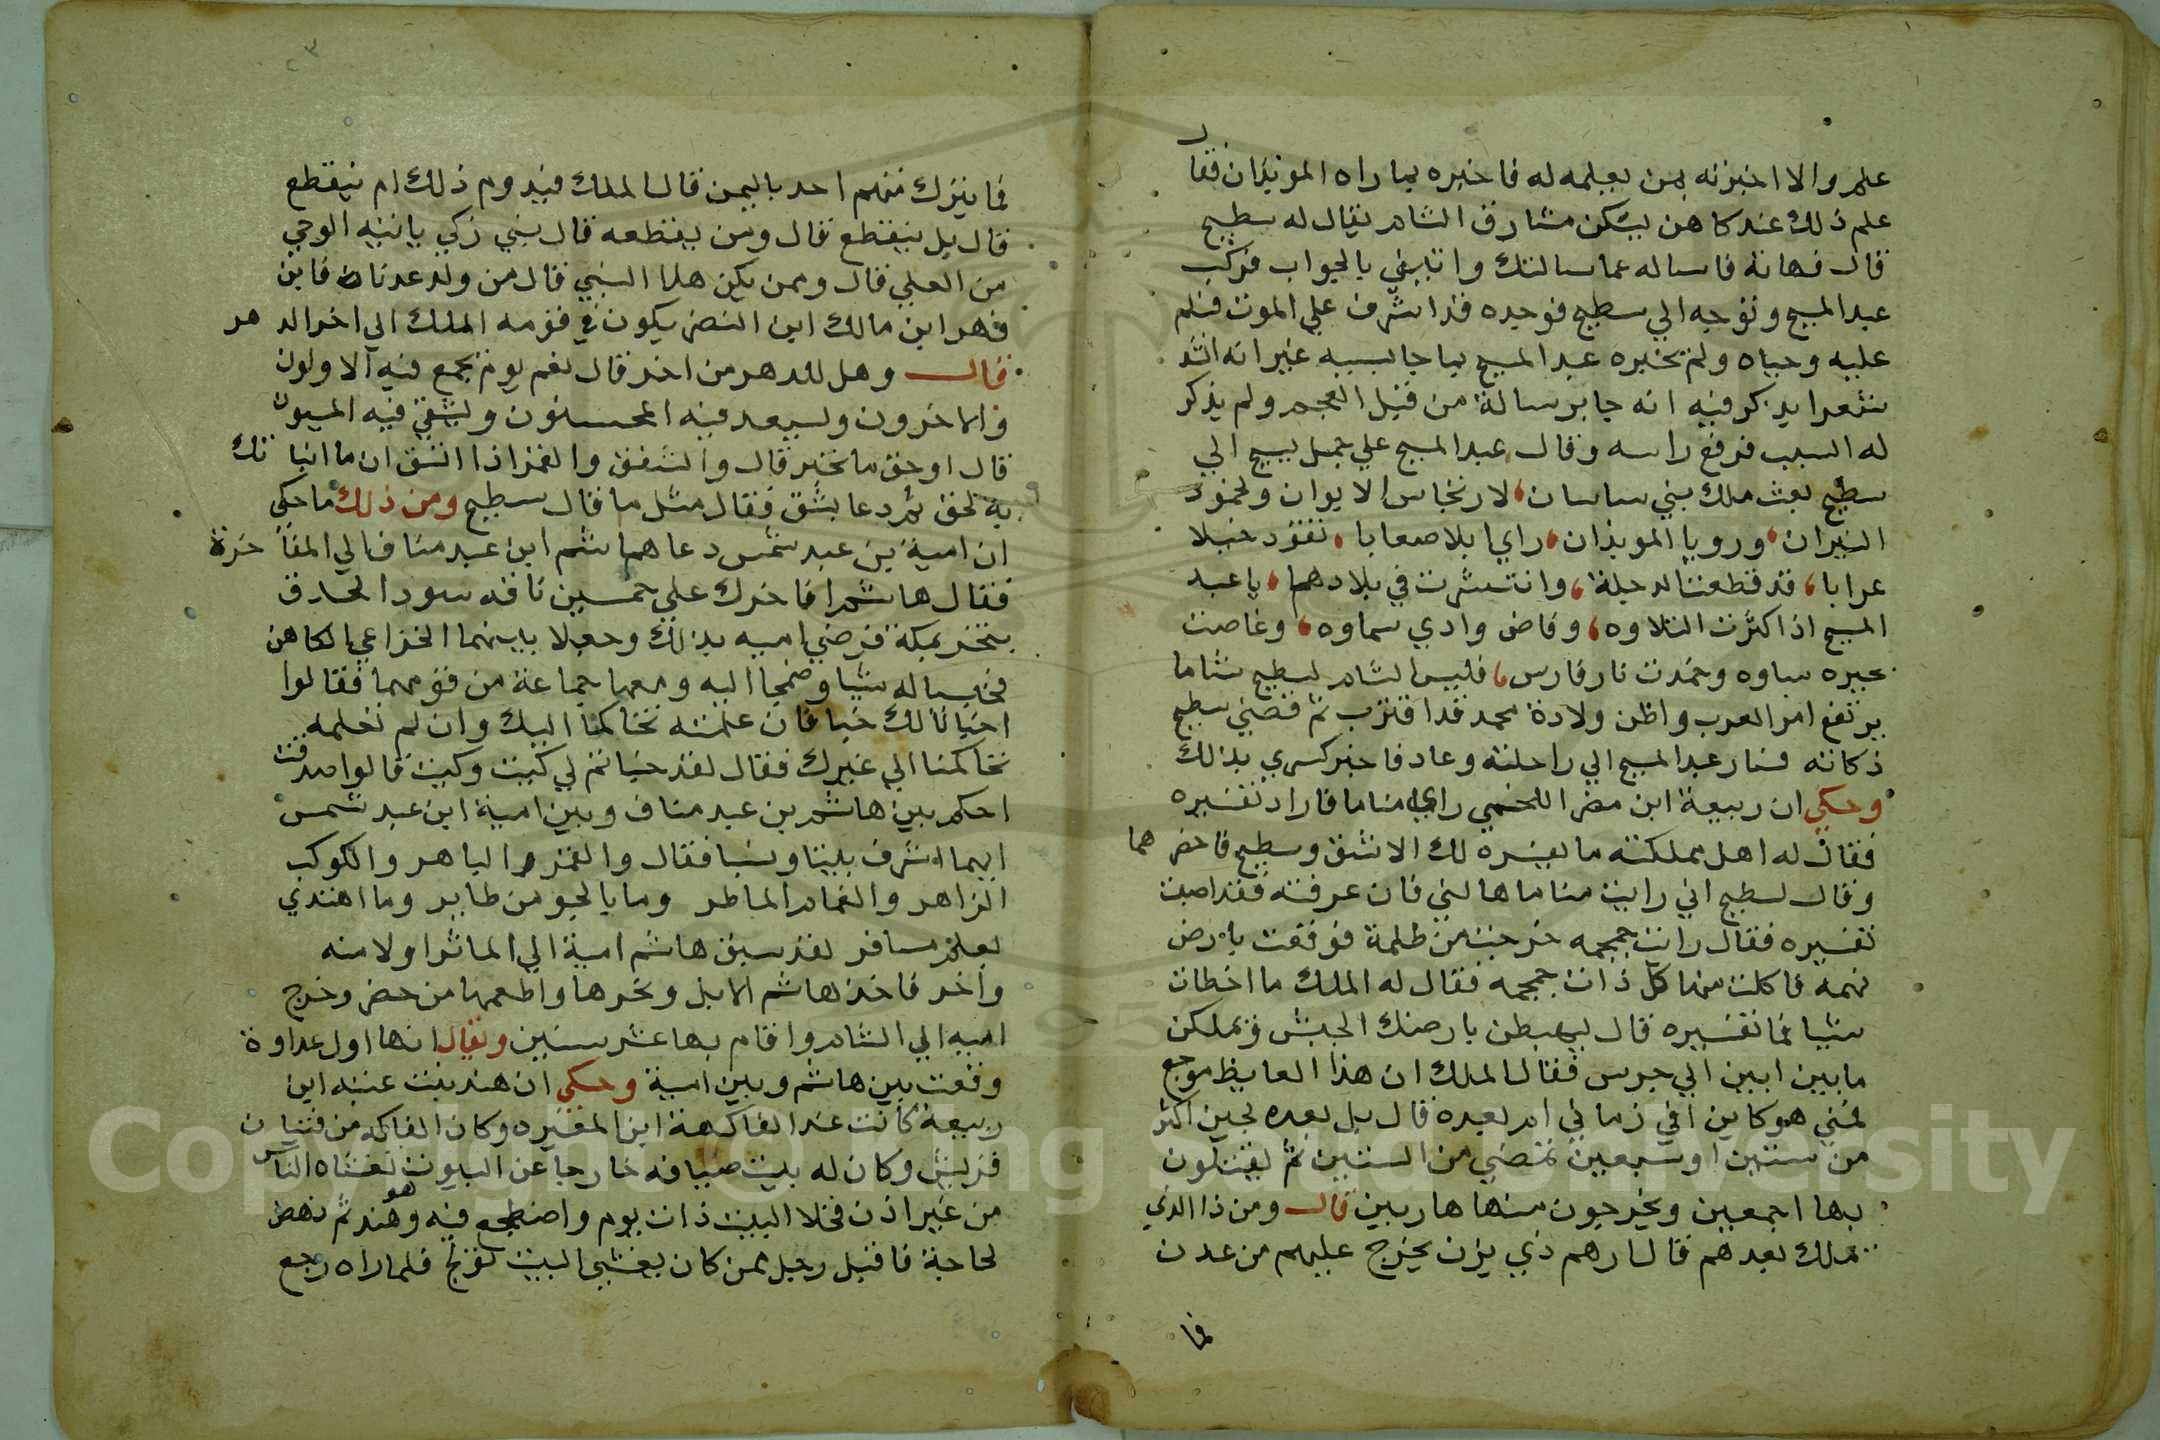 علم والا اخبرته بمن يعلمه له فاخبره بما راه الموبذان فقال
علم ذلك عند كاهن يسكن مشارق الشام يقال له سطيح
قال فهاته فاساله عما سالتك واتيني بالجواب فركب
عبد المسيح وتوجه الي سطيح فوجده قد اشرف علي الموت فسلم
عليه وحياه ولم يخبره عبد المسيح بما جا بسببه غير انه انشد
شعرا يذكر فيه انه جا برسالة من قبل العجم ولم يذكر
له السبب فرفع راسه وقال عبد المسيح علي جمل يسيح الي
سطيح بعثك ملك بني ساسان لارتجاس الايوان ولخمود
النيران ورويا الموبذان راي ابلا صعابا تقود خيلا
عرابا قد قطعت الدجلة وانتشرت في بلادهما يا عبد
المسيح اذا كثرت التلاوه وفاض وادي سماوه وغاضت
بحيره ساوه وخمدت نار فارس فليس الشام لسطيح شاما
يرتفع امر العرب واظن ولادة محمد قد اقترب ثم قضي سطيح
مكانه فسار عبد المسيح الي راحلته وعاد فاخبر كسري بذلك
وحكي ان ربيعة ابن مضر اللخمي راي مناما فاراد تفسيره
فقال له اهل مملكته ما يفسره لك الا شق وسطيح فاحضرهما
وقال لسطيح اني رايت مناما هالني فان عرفته فقد اصبت
تفسيره فقال رايت جمجمه خرجت من ظلمة فوقعت بارض
تهمه فاكلت منها كل ذات جمجمه فقال له الملك ما اخطات
شيا فما تفسيره قال ليهبطن بارضك الحبش فيملكن
ما بين ابين الي جرس فقال الملك ان هذا لغايظ موجع
فمتي هو كاين افي زماني ام بعده قال بل بعده بحين اكثر
من ستين او سبعين تمضي من السنين ثم يقتتلون
بها اجمعين ويخرجون منها هاربين قال ومن ذا الذي
يملك بعدهم قال ارم ذي يزن يخرج عليهم من عدن
فما
فما يترك منهم احد باليمن قال الملك فيدوم ذلك ام ينقطع
قال بل ينقطع قال ومن يقطعه قال نبي زكي ياتيه الوحي
من العلي قال وممن يكن هذا النبي قال من ولد عدنان فابن
فهر ابن مالك ابن النضر يكون في قومه الملك الي اخر الدهر
قال وهل للدهر من اخر قال نعم يوم يجمع فيه الاولون
والاخرون ويسعد فيه المحسنون ويشقي فيه المسيون
قال اوحق ما تخبر قال والشفق والقمر اذا اتسق ان ما انباتك
به لحق ثم دعا بشق فقال مثل ما قال سطيح ومن ذلك ما حكي
ان امية بن عبد شمس دعا هاشم ابن عبد مناف الي المفاخرة
فقال هاشم افاخرك علي خمسين ناقه سود الحدق
تنحر بمكة فرضي اميه بذلك وجعلا بينهما الخزاعي الكاهن
فخبيا له شيا وخرجا اليه ومعهما جماعة من قومهما فقالوا
اخبانا لك خبا فان علمته تحاكمنا اليك وان لم تعلمه
تحاكمنا الي غيرك فقال لقد خباتم لي كيت وكيت قالوا صدقت
احكم بين هاشم بن عبد مناف وبين امية ابن عبد شمس
ايهما اشرف بيتا ونسبا فقال والقمر الباهر والكوكب
الزاهر والغمام الماطر وما بالجو من طاير وما اهتدي
بعلم مسافر لقد سبق هاشم امية الي الماثر اولا منه
واخر فاخذ هاشم الابل ونحرها واطعمها من حضر وخرج
اميه الي الشام واقام بها عشر سنين ويقال انها اول عداوة
وقعت بين هاشم وبين امية وحكي ان هند بنت عتبه ابن
ربيعة كانت عند الفاكهة ابن المغيره وكان الفاكه من فتيان
قريش وكان له بيت ضيافه خارجا عن البيوت تغشاه الناس
من غير اذن فخلا البيت ذات يوم واضطجع فيه هو وهند ثم نهض
لحاجة فاقبل رجل ممن كان يغشي البيت فولج فلما راه رجع